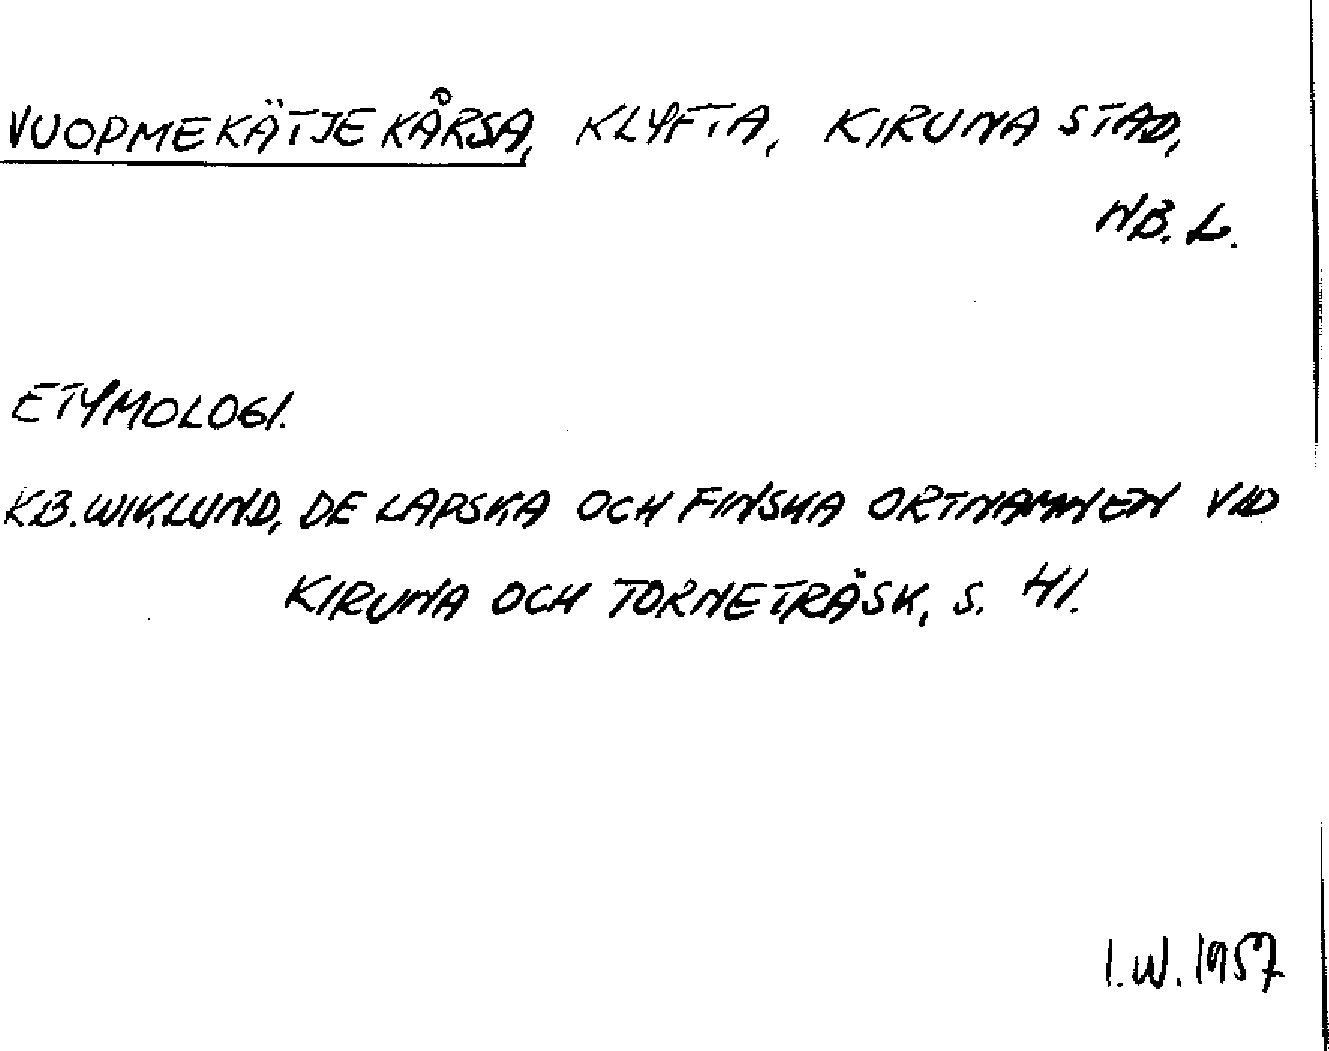 VUOPMEKÄTJEKÅRSA, KLYFTA, KIRUNA STAD,
NB. L.
ETYMOLOGI.
K.B. WIKLUND, DE LAPSKA OCH FINSKA ORTNAMNEN VID
KIRUNA OCH TORNETRÄSK, S. 41.
I.W. 1957